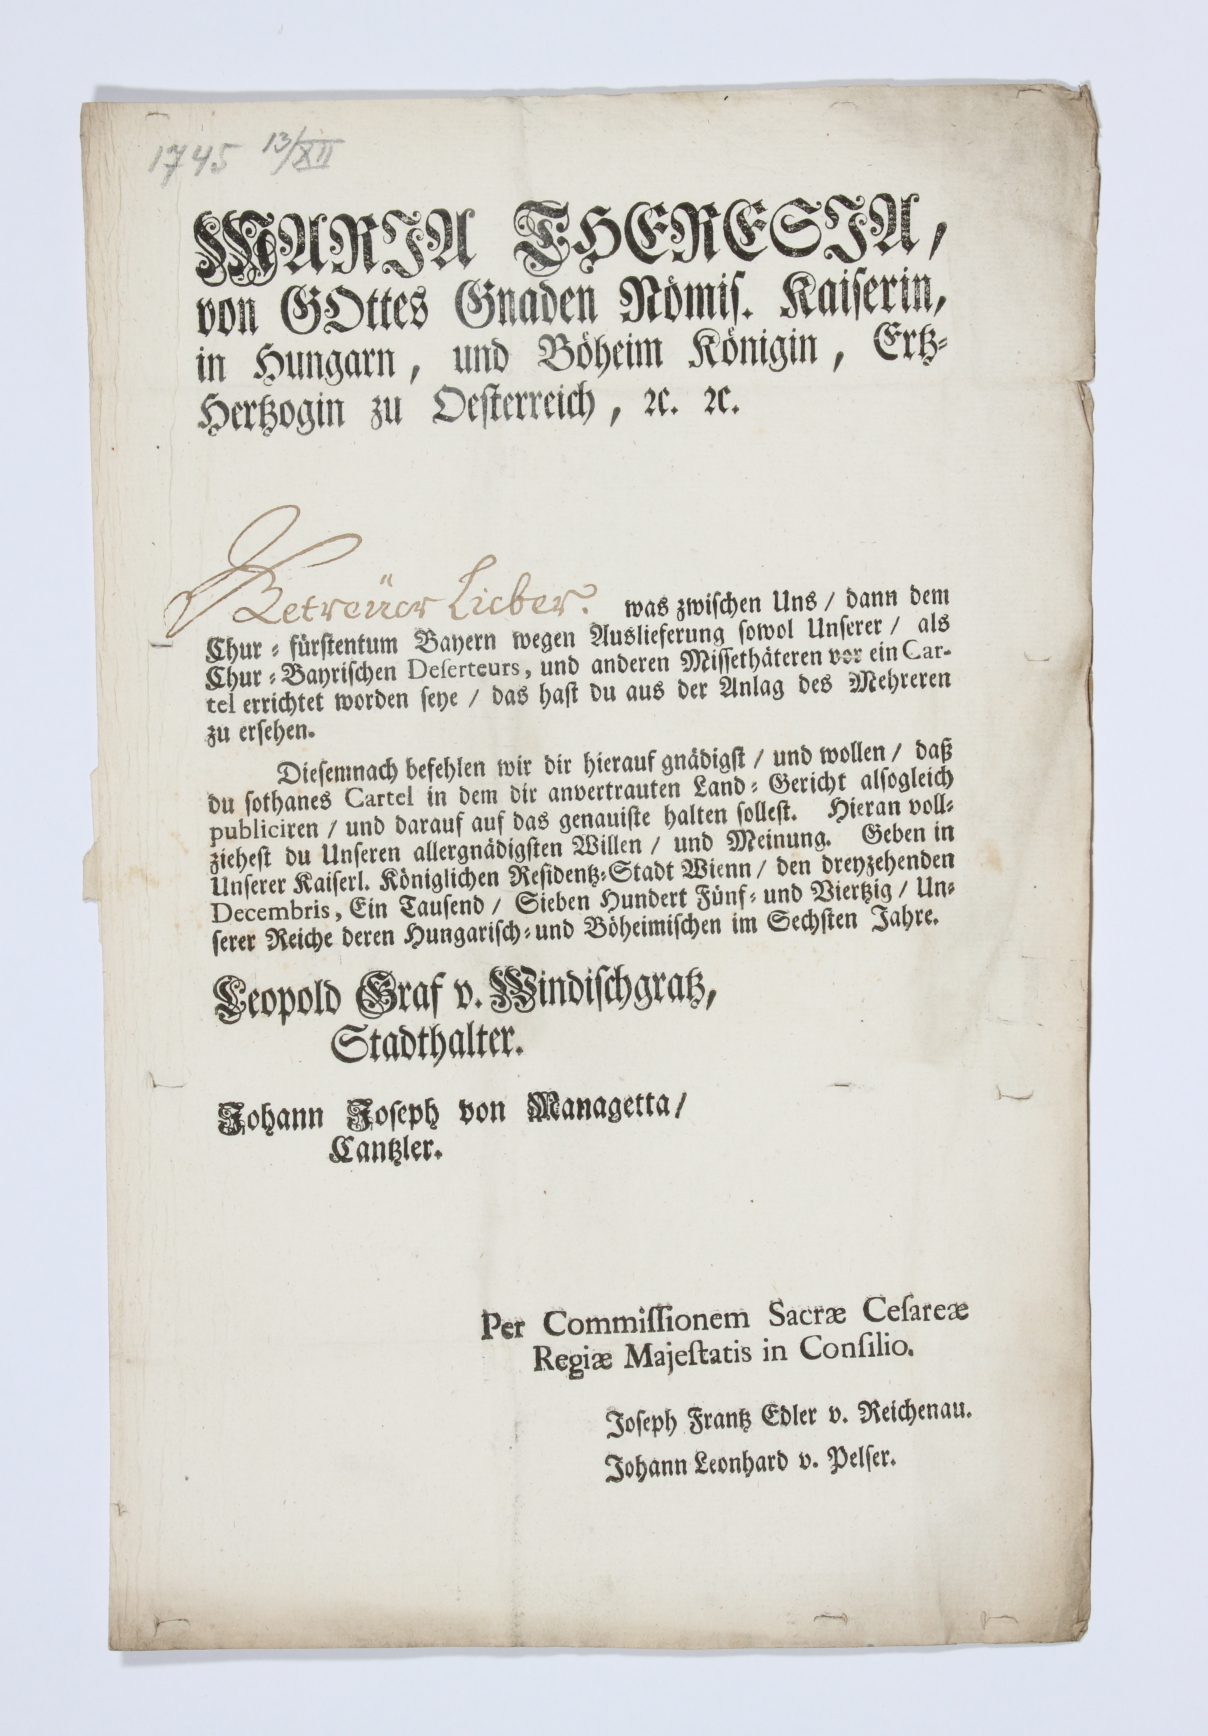 1745 13/XII
MARIA THERESIA,
von GOttes Gnaden Römis. Kaiserin,
in Hungarn, und Böheim Königin, Ertz-
Hertzogin zu Oesterreich, ꝛc. ꝛc.
Getreüer Lieber. was zwischen Uns / dann dem
Chur-fürstentum Bayern wegen Auslieferung sowol Unserer / als
Chur-Bayrischen Deserteurs, und anderen Missethäteren vor ein Car-
tel errichtet worden seye / das hast du aus der Anlag des Mehreren
zu ersehen.
Diesemnach befehlen wir dir hierauf gnädigst / und wollen / daß
du sothanes Cartel in dem dir anvertrauten Land-Gericht alsogleich
publiciren / und darauf auf das genauiste halten sollest. Hieran voll-
ziehest du Unseren allergnädigsten Willen / und Meinung. Geben in
Unserer Kaiserl. Königlichen Residentz-Stadt Wienn / den dreyzehenden
Decembris, Ein Tausend / Sieben Hundert Fünf- und Viertzig / Un-
serer Reiche deren Hungarisch- und Böheimischen im Sechsten Jahre.
Leopold Graf v. Windischgratz,
Stadthalter.
Johann Joseph von Managetta /
Cantzler.
Per Commissionem Sacræ Cesareæ
Regiæ Majestatis in Consilio.
Joseph Frantz Edler v. Reichenau.
Johann Leonhard v. Pelser.